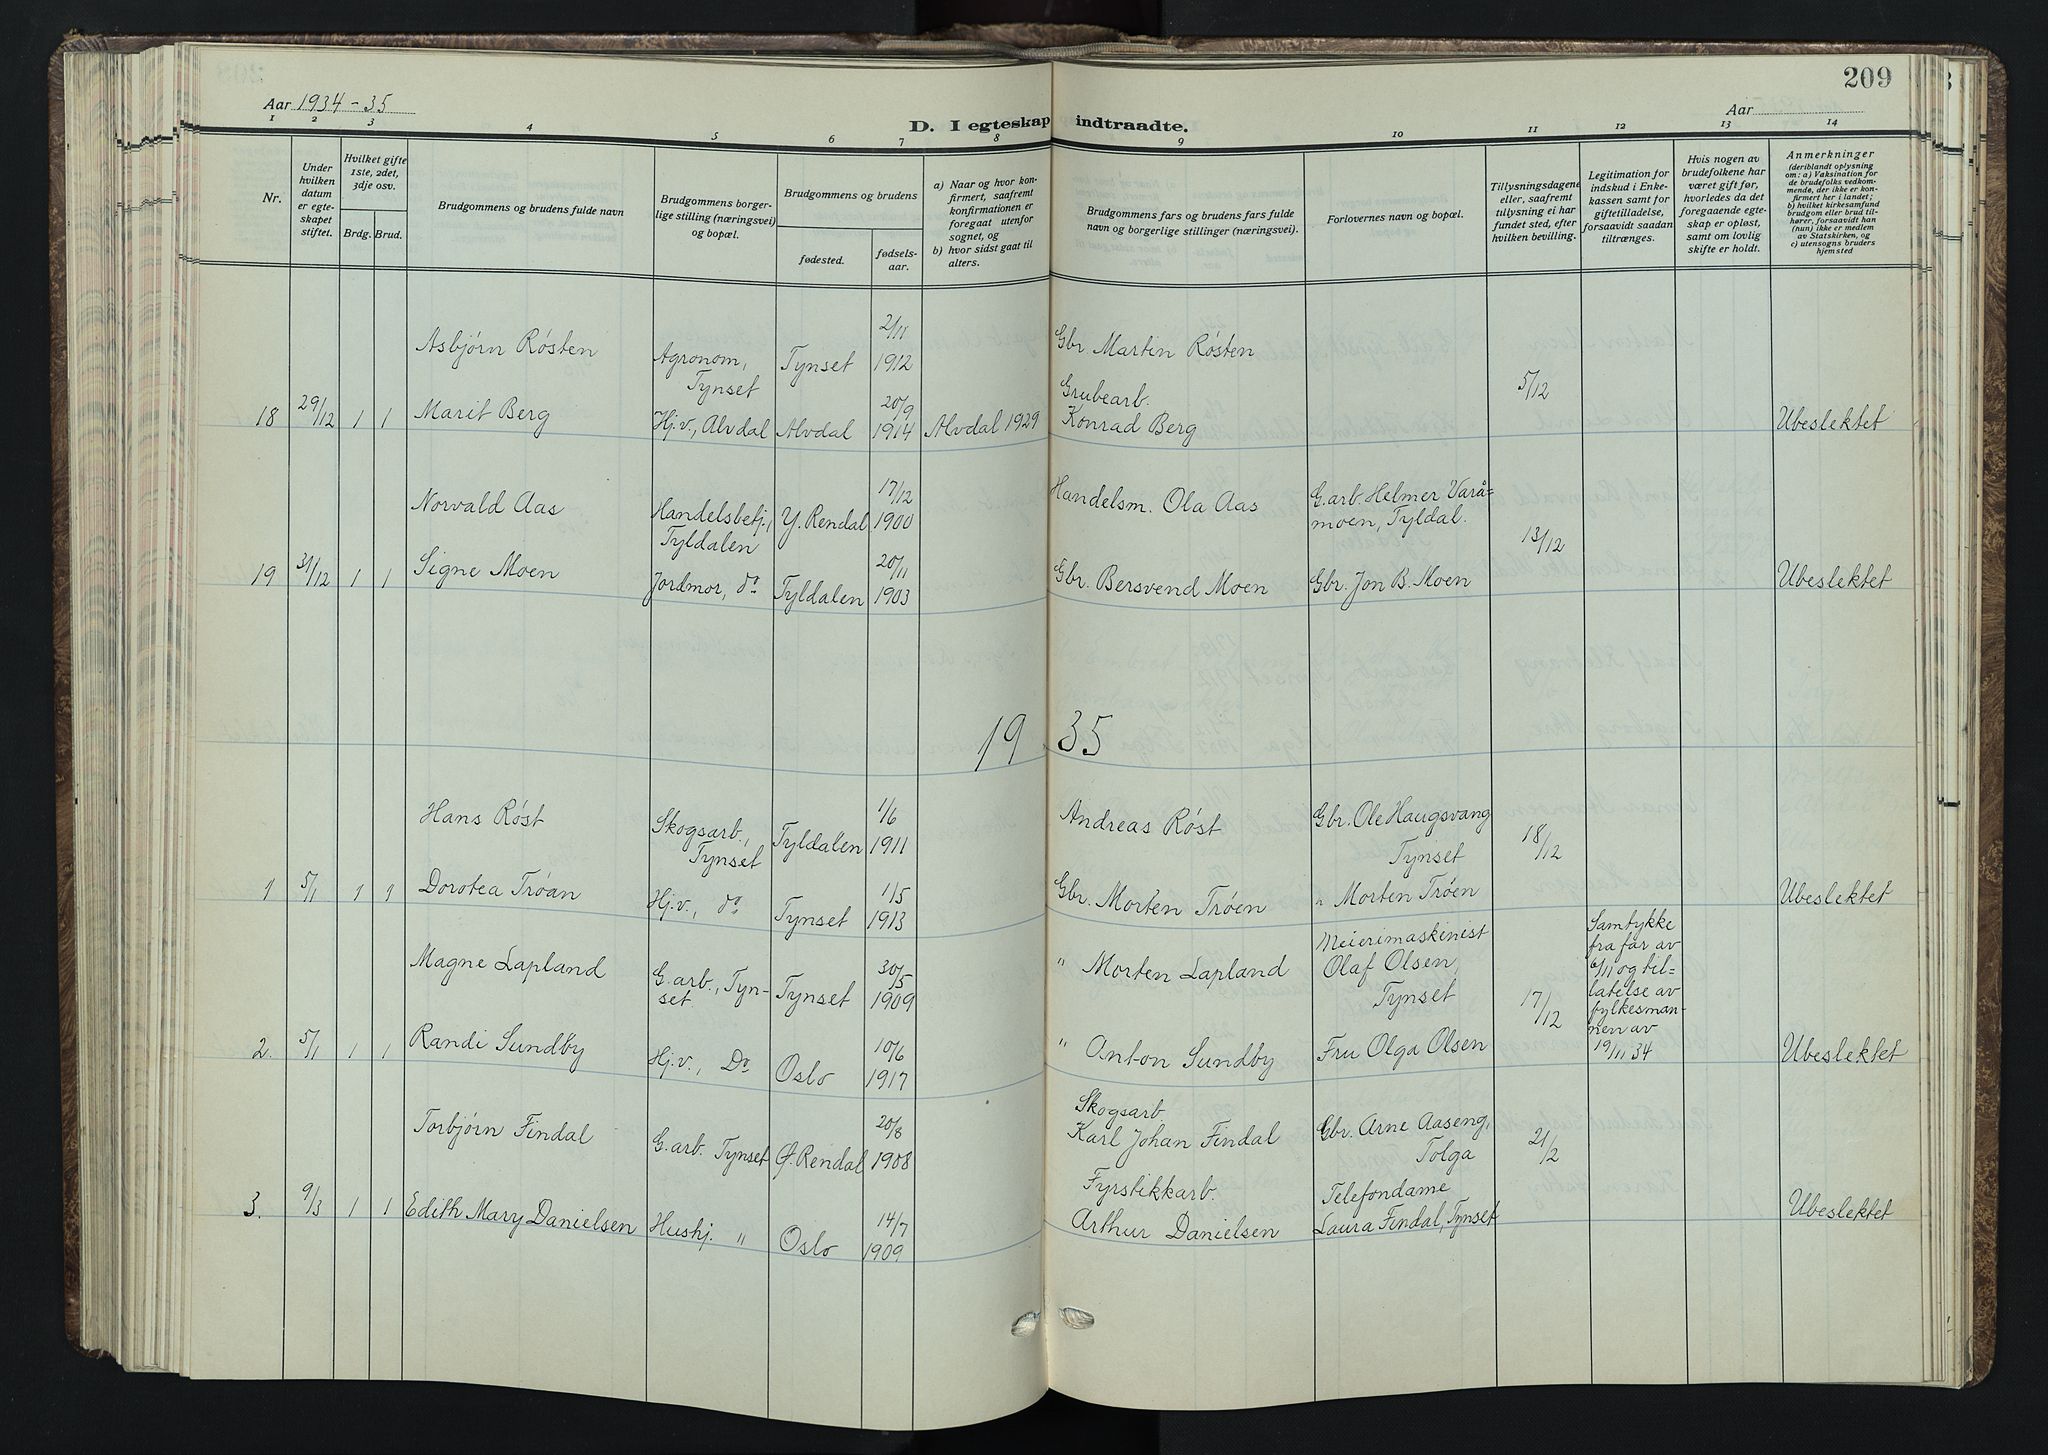 209
Aar 1934-35
Aar
D. I egteskap indtraadte.
1 2 3 4 5 6 7 8 9 10 11 12 13 14
Nr.
Under hvilken datum er egteskapet stiftet.
Hvilket gifte 1ste, 2det, 3dje osv.
Brdg. Brud.
Brudgommens og brudens fulde navn
Brudgommens borgerlige stilling (næringsvei) og bopæl.
Brudgommens og brudens
fødested.
fødselsaar.
a) Naar og hvor konfirmert, saafremt konfirmationen er foregaat utenfor sognet, og
b) hvor sidst gaat til alters.
Brudgommens fars og brudens fars fulde navn og borgerlige stillinger (næringsvei).
Forlovernes navn og bopæl.
Tillysningsdagene eller, saafremt tillysning ei har fundet sted, efter hvilken bevilling.
Legitimation for indskud i Enkekassen samt for giftetilladelse, forsaavidt saadan tiltrænges.
Hvis nogen av brudefolkene har været gift før, hvorledes da det foregaaende egteskap er opløst, samt om lovlig skifte er holdt.
Anmerkninger
(deriblandt oplysning om: a) Vaksination for de brudefolks vedkommende, der ikke er konfirmert her i landet; b) hvilket kirkesamfund brudgom eller brud tilhører, forsaavidt han (hun) ikke er medlem av Statskirken, og c) utensogns bruders hjemsted
Asbjørn Røsten Agronom, Tynset Tynset 2/11 1912 Gbr. Martin Røsten
5/12
18 29/12 1 1 Marit Berg Hj.v., Alvdal Alvdal 20/9 1914 Alvdal 1929 Grubearb. Konrad Berg Ubeslektet
Norvald Aas Handelsbetj., Tyldalen Y. Rendal 17/12 1900 Handelsm. Ola Aas G.arb. Helmer Varåmoen, Tyldal.
13/12
19 31/12 1 1 Signe Moen Jordmor, do Tyldalen 20/11 1903 Gbr. Bersvend Moen Gbr. Jon B. Moen Ubeslektet
19 35
Hans Røst Skogsarb., Tynset Tyldalen 1/6 1911 Andreas Røst Gbr. Ole Haugsvang Tynset 18/12
1 5/1 1 1 Dorotea Trøan Hj.v., do Tynset 1/5 1913 Gbr. Morten Trøen " Morten Trøen Ubeslektet
Magne Lapland G.arb., Tynset Tynset 30/5 1909 " Morten Lapland Meierimaskinist Olaf Olsen, Tynset 17/12 Samtykke fra far av 6/11 og tillatelse av fylkesmannen av 19/11 34
2. 5/1 1 1 Randi Sundby Hj.v., Do Oslo 10/6 1917 " Anton Sundby Fru Olga Olsen Ubeslektet
Torbjørn Findal G.arb. Tynset Ø. Rendal 20/8 1908 Skogsarb. Karl Johan Findal Gbr. Arne Aaseng, Tolga 21/2
3. 9/3 1 1 Edith Mary Danielsen Hushj. " Oslo 14/7 1909 Fyrstikkarb. Arthur Danielsen Telefondame Laura Findal, Tynset Ubeslektet